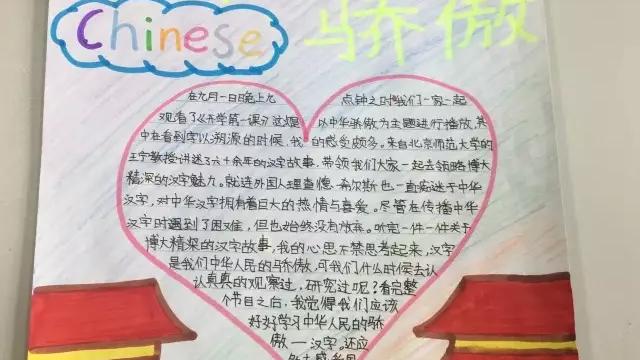 Chinese 骄傲
在九月一日晚上九点钟之时我们一家一起
观看了《开学第一课》这期以中华骄傲为主题进行播放,其
中在看到字以溯源的时候,我的感受颇多。来自北京师范大学的
王宁教授讲述了六十余年的汉字故事,带领我们大家一起去领略博大
精深的汉字魅力。就连外国人理查德·希尔斯也一直痴迷于中华
汉字,对中华汉字拥有着巨大的热情与喜爱。尽管在传播中华
汉字时遇到了困难,但也始终没有放弃。听完一件一件关于
博大精深的汉字故事,我的心思不禁思考起来,汉字
是我们中华人民的骄傲,可我们什么时候去认
认真真的观察过,研究过呢?看完整
个节目之后,我觉得我们应该
好好学习中华人民的骄
傲—汉字。还应